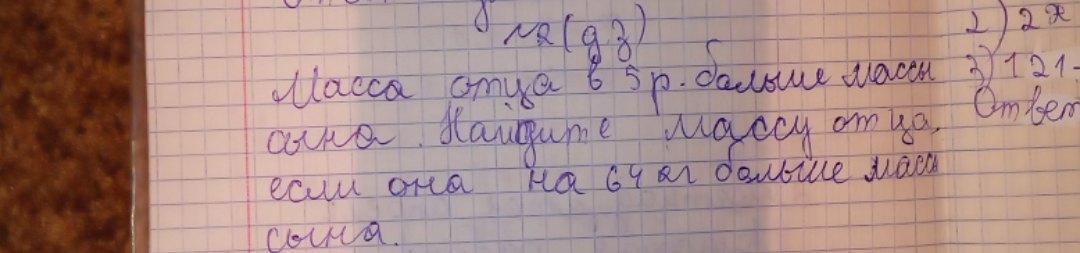 №2(дз)
Масса отца в 5 р. больше массы
сына. Найдите массу отца,
если она на 64 кг больше массы
сына.
2) 2x
3) 121-
Ответ